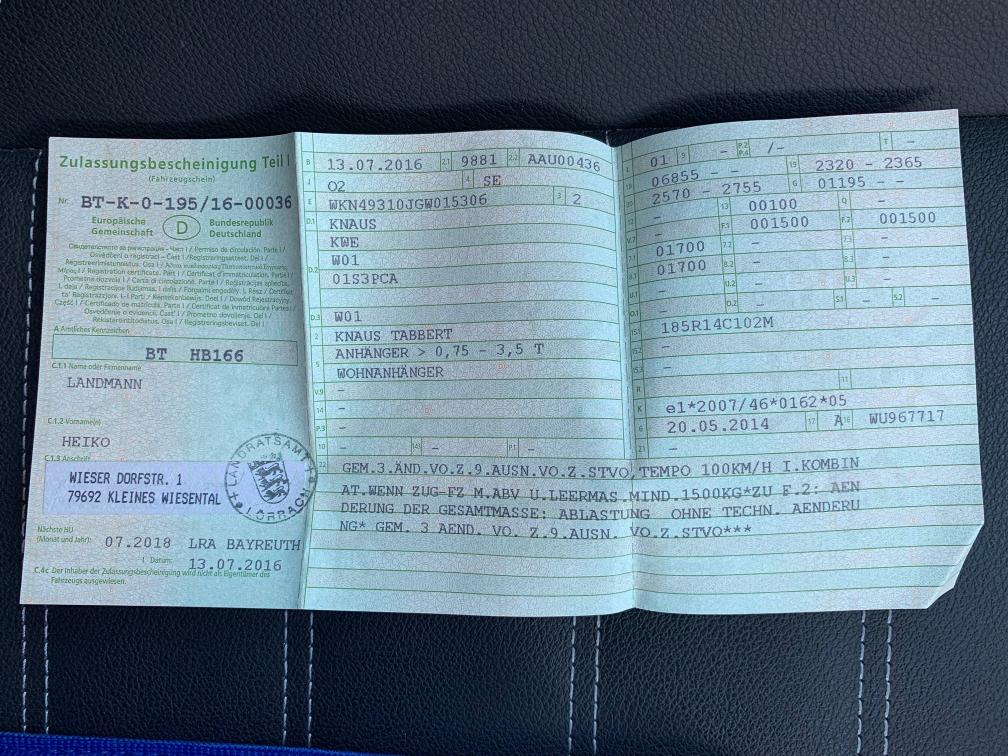 Zulassungsbescheinigung Teil I
(Fahrzeugschein)
Nr. BT-K-0-195/16-00036
Europäische Gemeinschaft D Bundesrepublik Deutschland
A Amtliches Kennzeichen
BT HB166
C.1.1 Name oder Firmenname
LANDMANN
C.1.2 Vorname(n)
HEIKO
C.1.3 Anschrift
WIESER DORFSTR. 1
79692 KLEINES WIESENTAL
LANDRATSAMT LÖRRACH
Nächste HU
(Monat und Jahr): 07.2018 LRA BAYREUTH
I Datum: 13.07.2016
C.4c Der Inhaber der Zulassungsbescheinigung wird nicht als Eigentümer des
Fahrzeugs ausgewiesen.
B 13.07.2016 2.1 9881 2.2 AAU00436
J O2 4 SE
E WKN49310JGW015306 3 2
D.1 KNAUS
KWE
W01
D.2 01S3PCA
D.3 W01
2 KNAUS TABBERT
ANHÄNGER > 0,75 - 3,5 T
5 WOHNANHÄNGER
V.9 -
14 -
P.3 -
10 - 14.1 - P.1 -
L 01 9 - P.2 P.4 /- T -
18 06855 - - 19 2320 - 2365
20 2570 - 2755 G 01195 - -
12 - 13 00100 Q -
V.7 - F.1 001500 F.2 001500
7.1 01700 7.2 - 7.3 -
8.1 01700 8.2 - 8.3 -
U.1 - U.2 - U.3 -
O.1 - O.2 - S.1 - S.2 -
15.1 185R14C102M
15.2 -
15.3 -
R 11
K e1*2007/46*0162*05
6 20.05.2014 17 A 16 WU967717
21 -
22 GEM.3.ÄND.VO.Z.9.AUSN.VO.Z.STVO,TEMPO 100KM/H I.KOMBIN
AT.WENN ZUG-FZ M.ABV U.LEERMAS.MIND.1500KG*ZU F.2: AEN
DERUNG DER GESAMTMASSE: ABLASTUNG OHNE TECHN. AENDERU
NG* GEM. 3 AEND. VO. Z.9.AUSN. VO.Z.STVO***